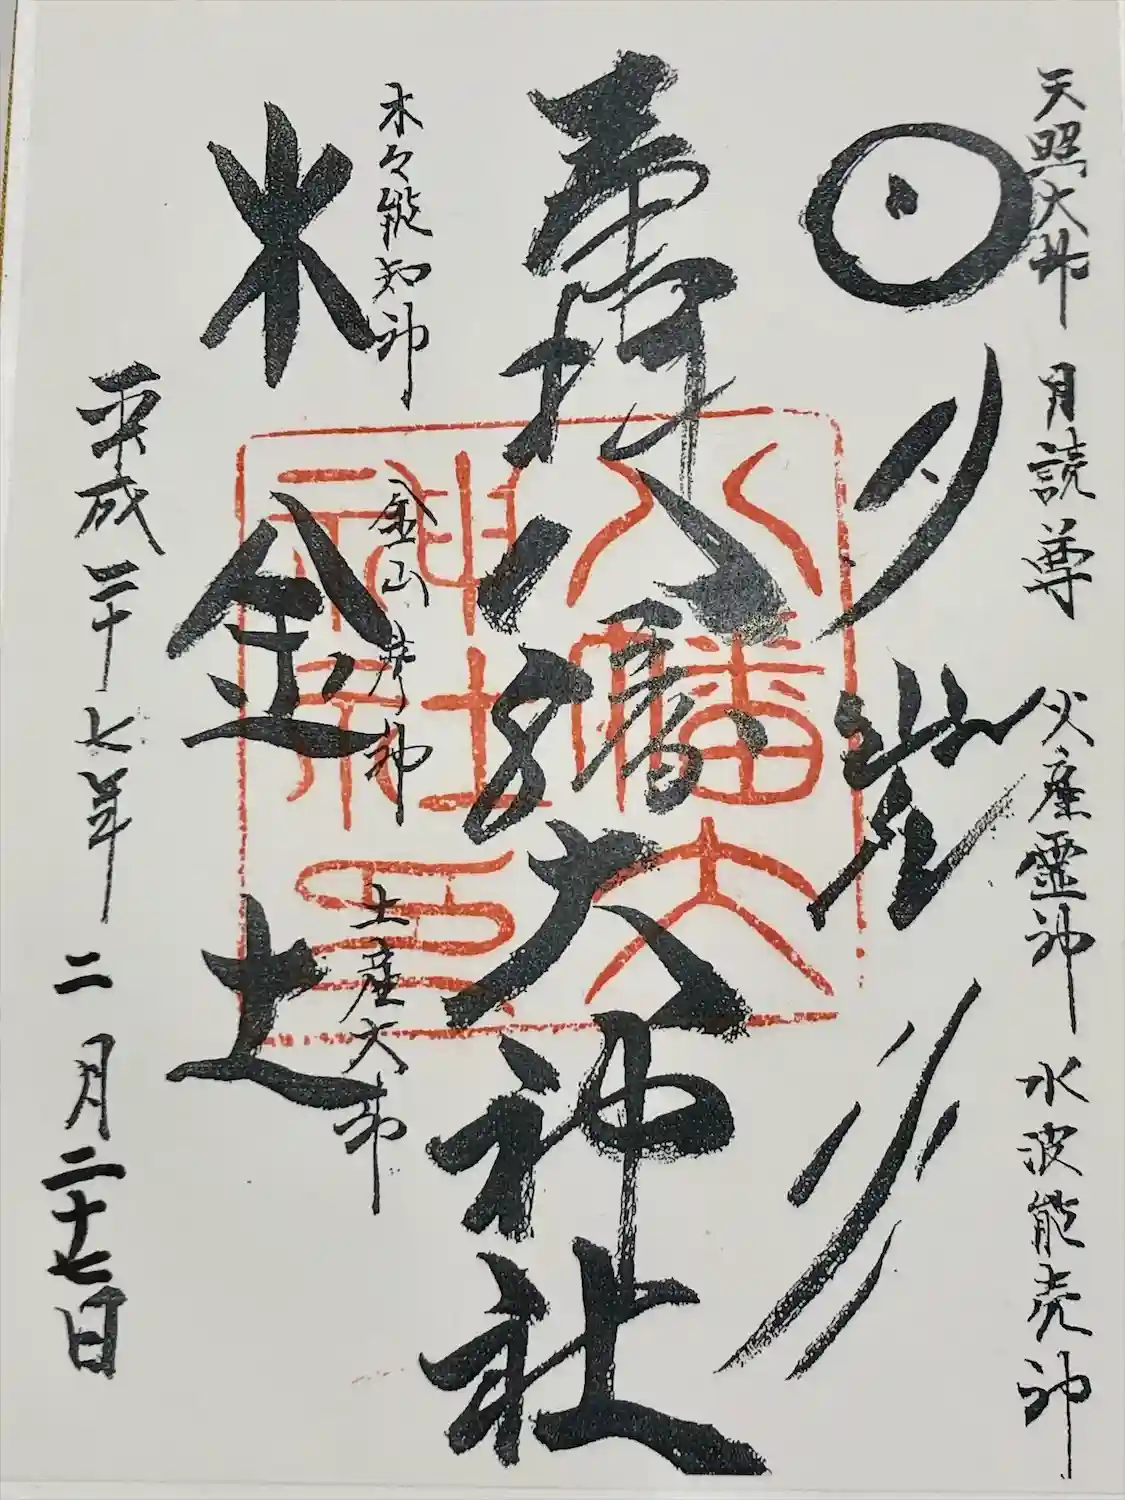 天照大神 月読尊 火産霊神 水波能売神
奉拝 八幡大神社
八幡大神社之印
木々能知神 金山彦神 土産大神
木 金 土
平成二十七年 二月二十七日